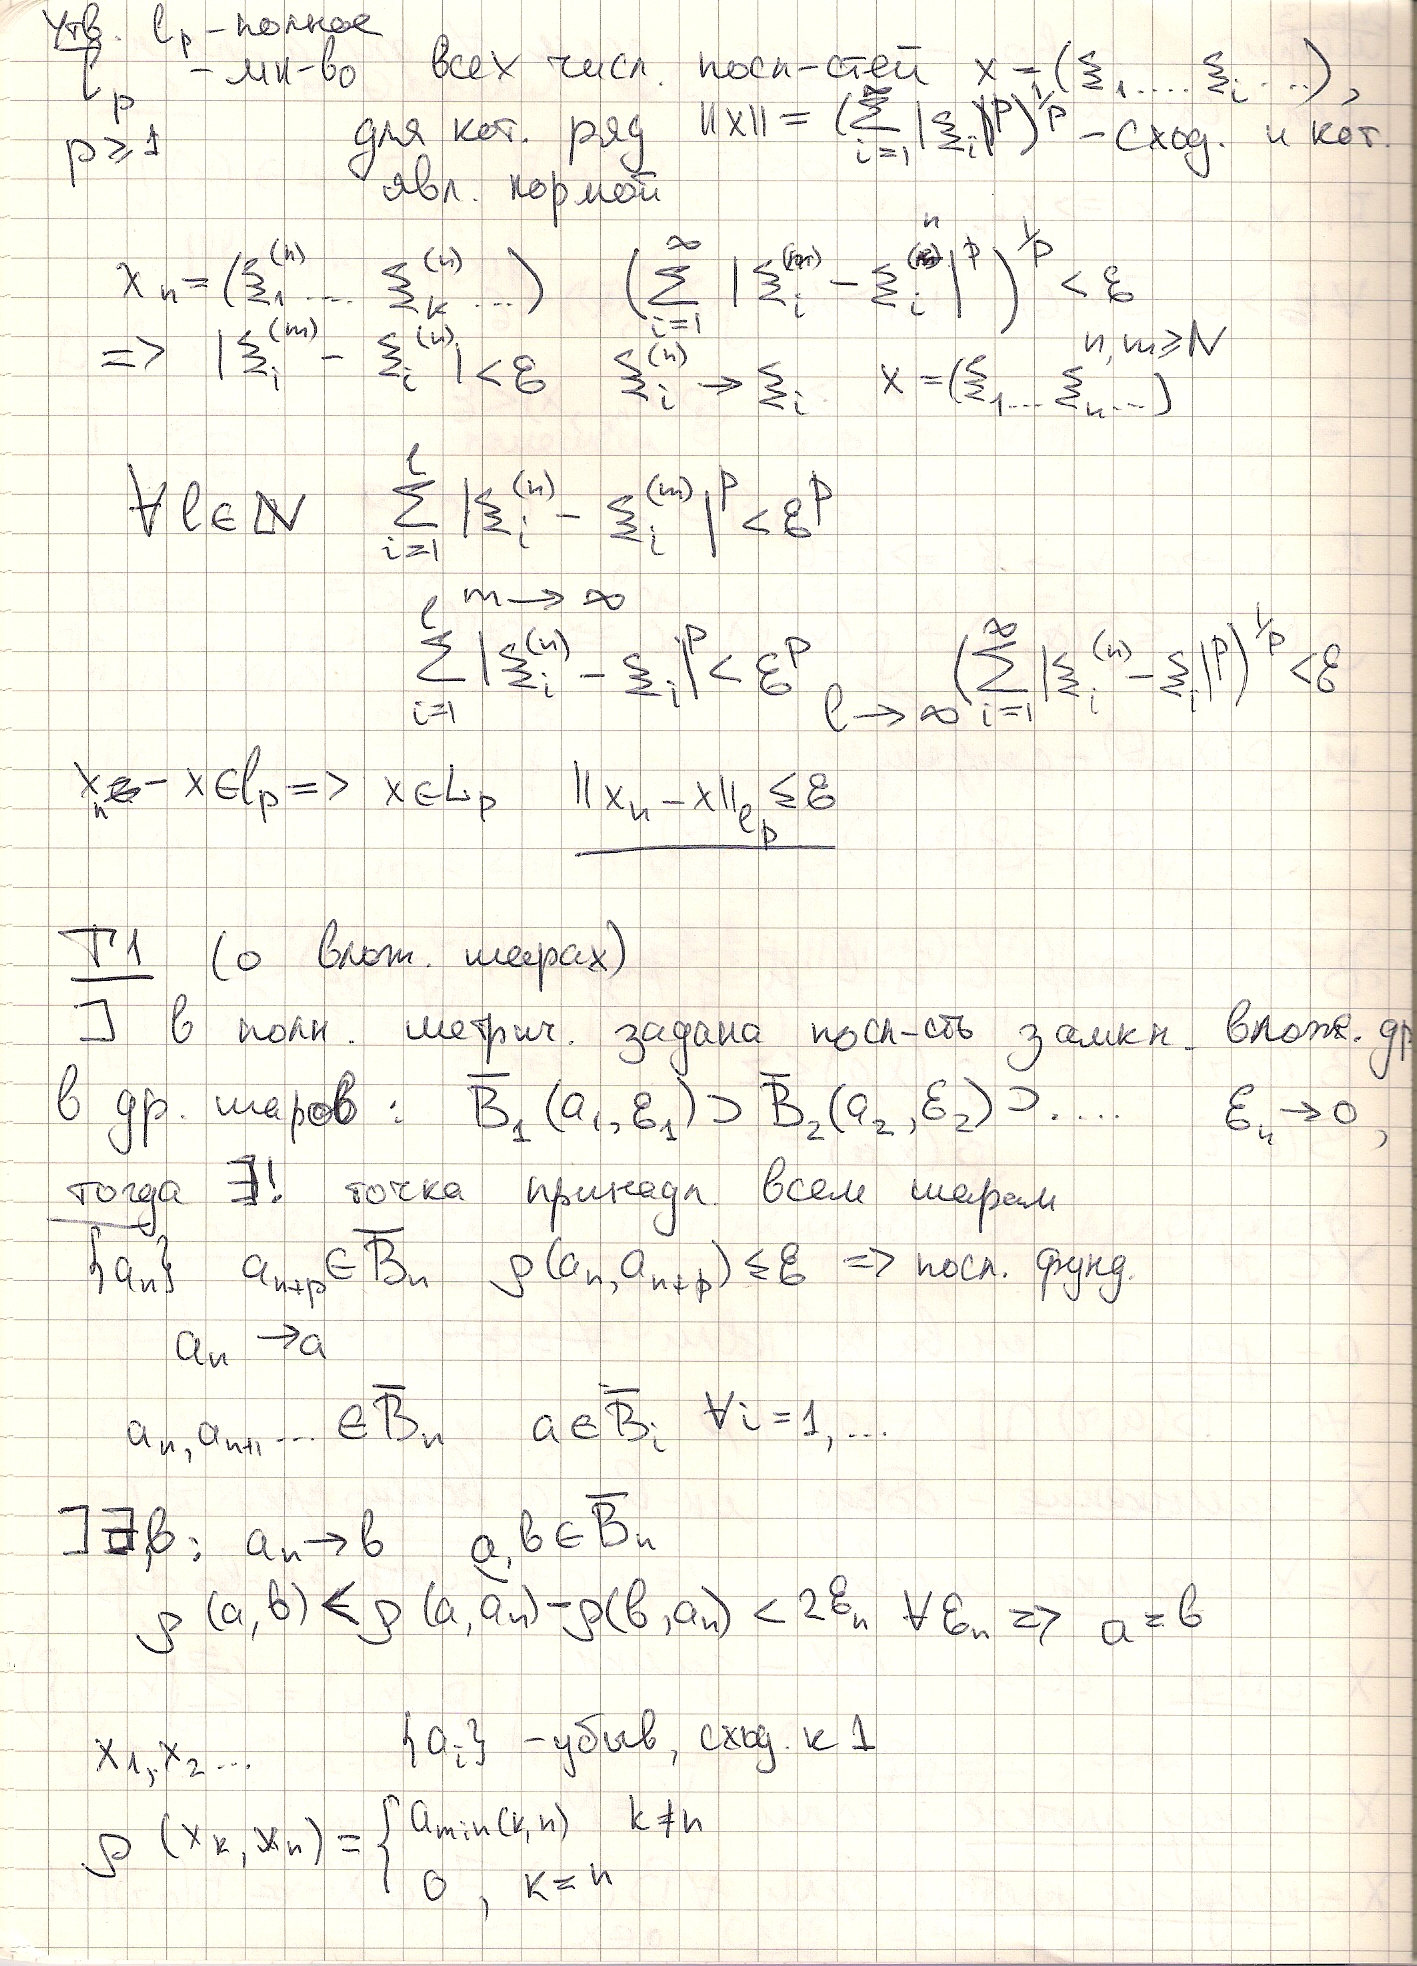 Утв. lₚ - полное
lₚ - мн-во всех числ. посл-стей x = (ξ₁ .... ξᵢ ...),
p ≥ 1 для кот. ряд ||x|| = (∑_{i=1}^{∞} |ξᵢ|^p)^{1/p} - сход. и кот.
явл. нормой
xₙ = (ξ₁^{(n)} .... ξₖ^{(n)} ...) (∑_{i=1}^{∞} |ξᵢ^{(m)} - ξᵢ^{(n)}|^p)^{1/p} < ε
n, m ≥ N
=> |ξᵢ^{(m)} - ξᵢ^{(n)}| < ε ξᵢ^{(n)} → ξᵢ x = (ξ₁ ... ξₙ ...)
∀ l ∈ N ∑_{i=1}^{l} |ξᵢ^{(n)} - ξᵢ^{(m)}|^p < ε^p
m → ∞
∑_{i=1}^{l} |ξᵢ^{(n)} - ξᵢ|^p < ε^p l → ∞ (∑_{i=1}^{∞} |ξᵢ^{(n)} - ξᵢ|^p)^{1/p} < ε
xₙ - x ∈ lₚ => x ∈ Lₚ ||xₙ - x||_{lₚ} ≤ ε
T1 (о влож. шарах)
] в полн. метрич. задана посл-сть замкн. влож. др
в др. шаров : B̅₁(a₁, ε₁) ⊃ B̅₂(a₂, ε₂) ⊃ .... εₙ → 0,
тогда ∃! точка принадл. всем шарам
{aₙ} aₙ₊ₚ ∈ B̅ₙ ρ(aₙ, aₙ₊ₚ) ≤ ε => посл. фунд.
aₙ → a
aₙ, aₙ₊₁ ... ∈ B̅ₙ a ∈ B̅ᵢ ∀i = 1, ...
] ∃ b : aₙ → b a, b ∈ B̅ₙ
ρ(a, b) ≤ ρ(a, aₙ) - ρ(b, aₙ) < 2εₙ ∀εₙ => a = b
x₁, x₂ ... {aᵢ} - убыв, сход. к 1
ρ(xₖ, xₙ) = { a_{min(k,n)} k ≠ n
0, k = n